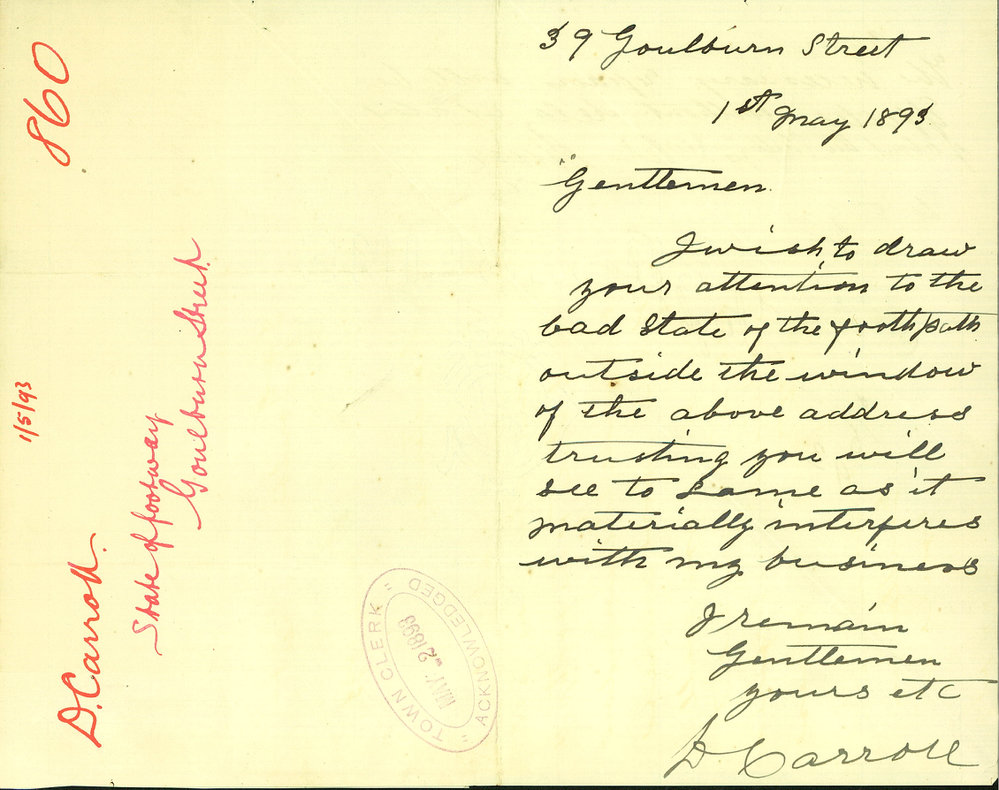 39 Goulburn Street
1st May 1893
Gentlemen
I wish to draw
your attention to the
bad state of the footh path
outside the window
of the above address
trusting you will
see to same as it
materially interferes
with my business
I remain
Gentlemen
yours etc
D Carroll
860
1/5/93
D. Carroll.
State of footway
Goulburn Street
"TOWN CLERK"
MAY 2 1893
ACKNOWLEDGED